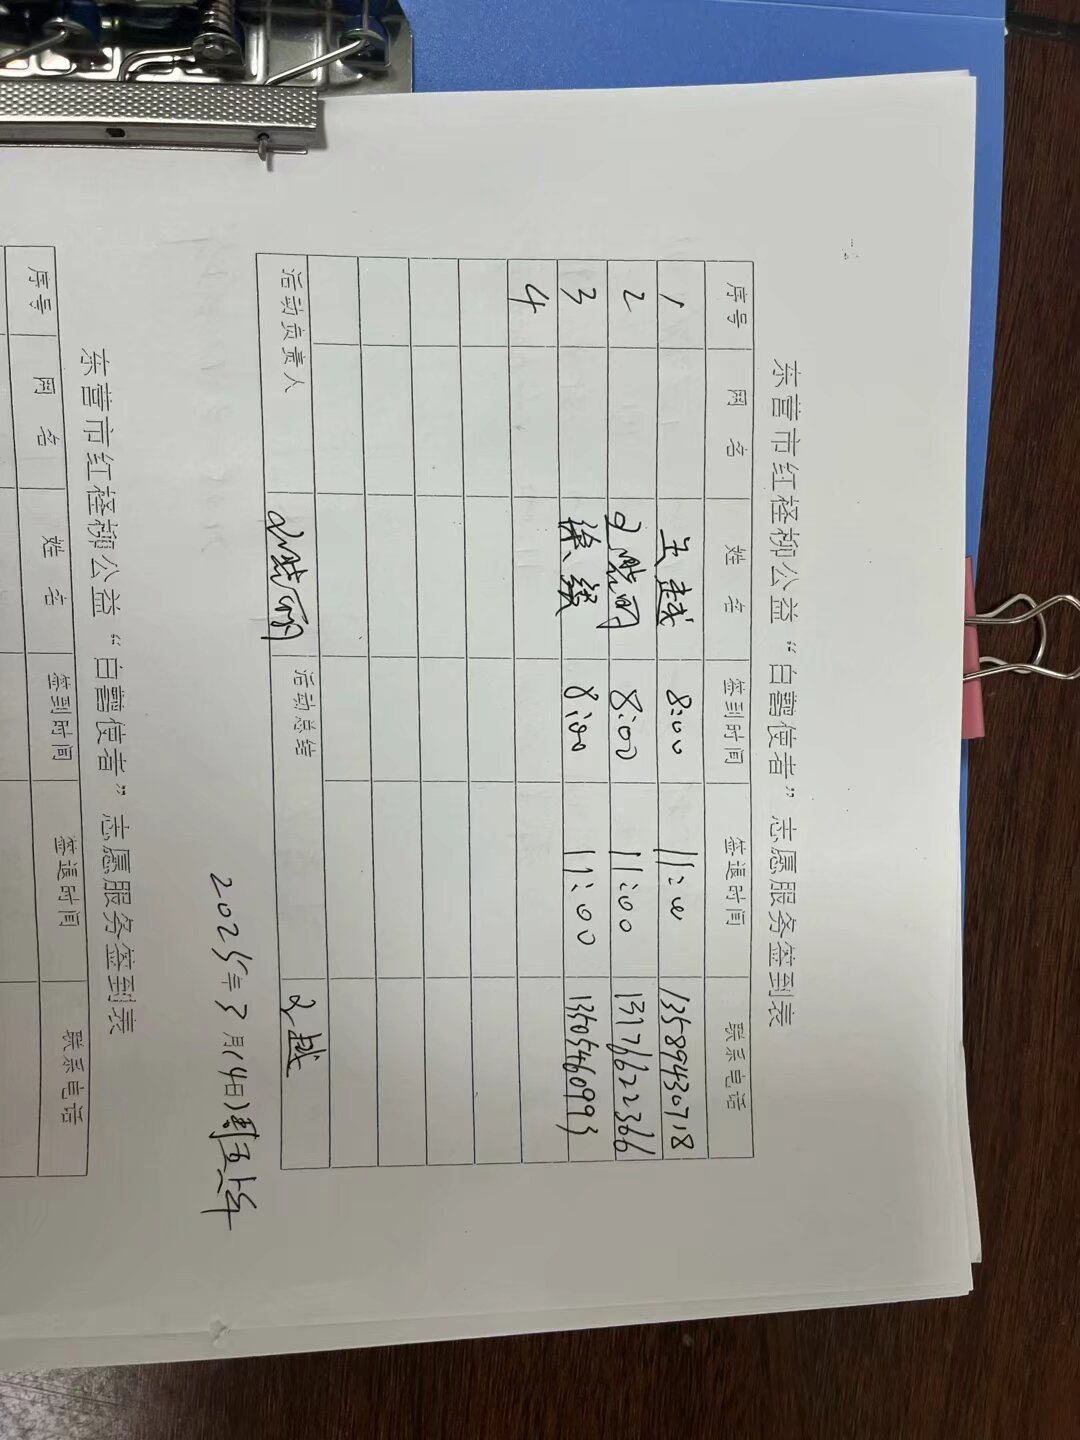 东营市红柽柳公益“白鹭使者”志愿服务签到表
序号 网名 姓名 签到时间 签退时间 联系电话
1 王越 8:00 11:00 13589430718
2 8:00 11:00 13176622366
3 徐 8:00 11:00 13505460993
4
活动负责人 活动总结 王越
2025年3月14日周五上午
东营市红柽柳公益“白鹭使者”志愿服务签到表
序号 网名 姓名 签到时间 签退时间 联系电话